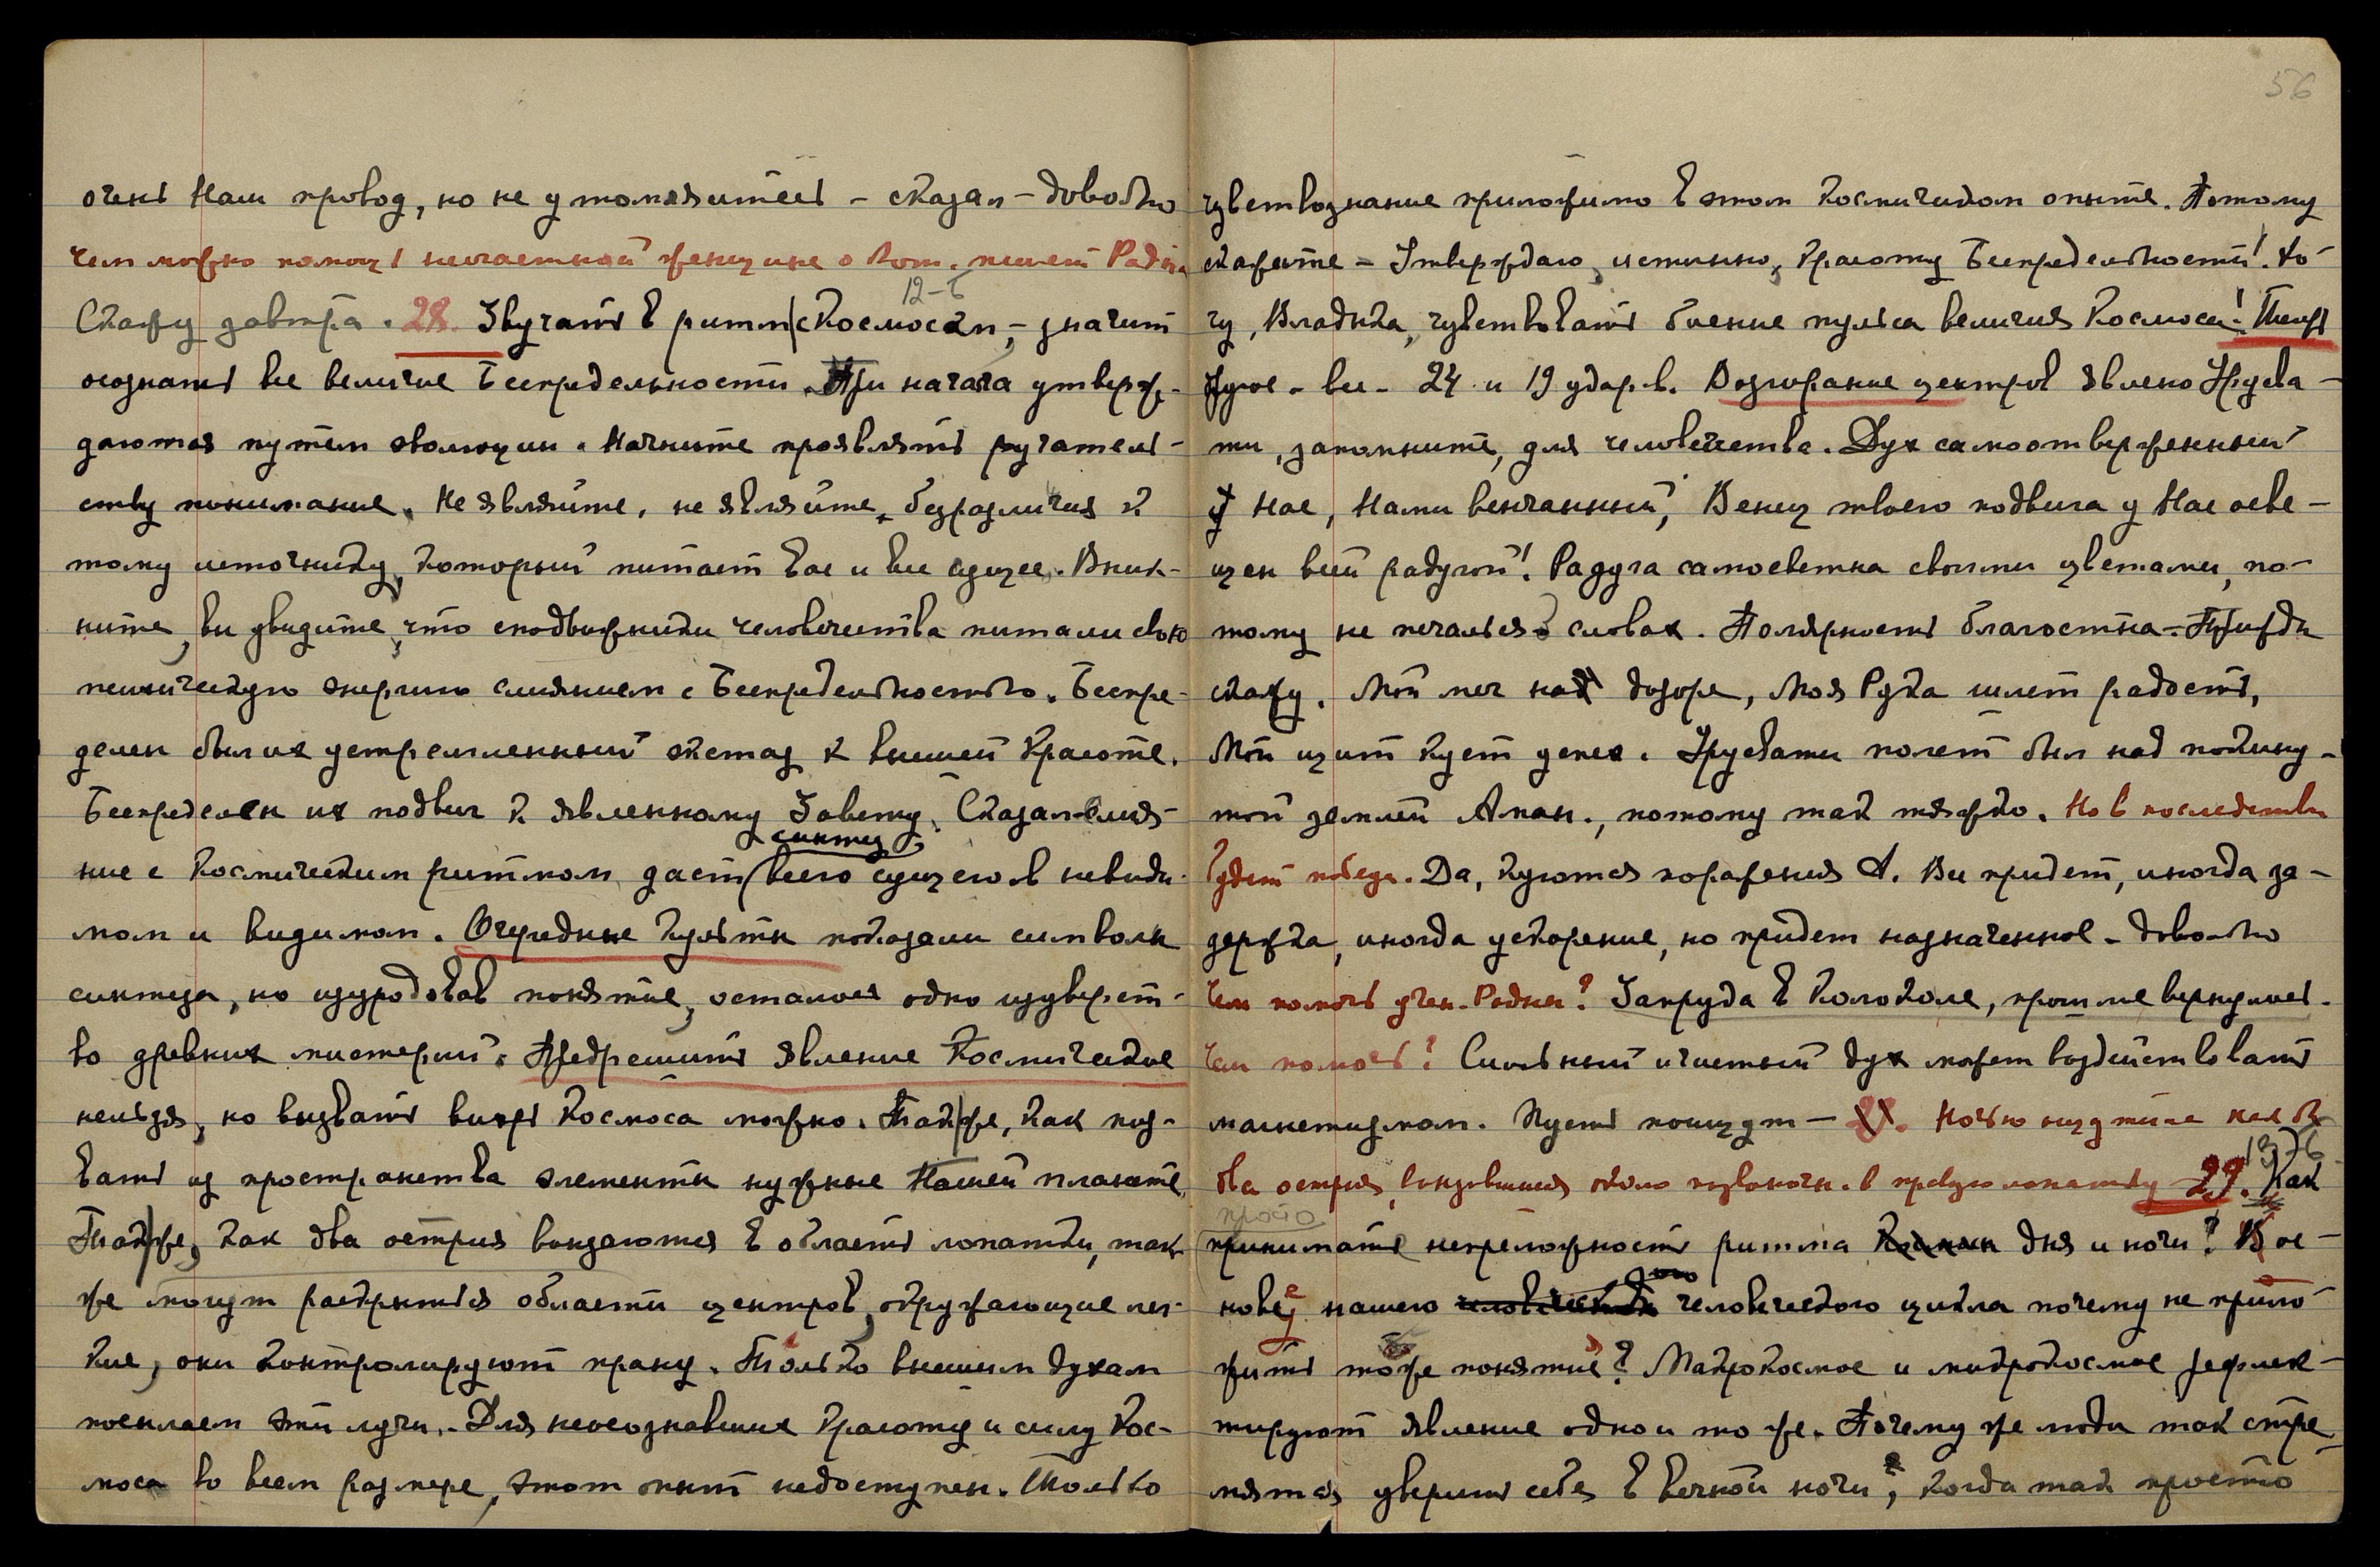 очень Наш провод, но не утомляйтесь – сказал – довольно
Чем можно помочь несчастной женщине о кот. пишет Радна
12–6
Скажу завтра. 28. Звучать в ритм с Космосом, – значит
осознать все величие Беспредельности. Три начала утверж-
даются путем эволюции. Начните проявлять ручатель-
ству понимание. Не являйте, не являйте, безразличия к
тому источнику, который питает вас и все сущее. Вник-
ните, вы увидите, что сподвижники человечества питали свою
психическую энергию слиянием с Беспредельностью. Беспре-
делен был их устремленный экстаз к высшей Красоте.
Беспределен их подвиг к явленному Завету. Сказал–слия-
синтез
ние с космическим ритмом даст всего сущего в невиди-
мом и видимом. Очередные культы показали символы
синтеза, но изуродовав понятие, осталось одно изуверст-
во древних мистерий. Предрешить явление Космическое
нельзя, но вызвать вихрь Космоса можно. Также, как выз-
вать из пространства элементы нужные Нашей планете.
Также, как два острия вонзаются в область лопатки, так
же могут раскрыться области центров, окружающие лег-
кие, они контролируют прану. Только высшим духам
посылаем эти лучи. Для неосознавших Красоту и силу Кос-
моса во всем размере, этот опыт недоступен. Только
56
чувствознание приложимо в этом космическом опыте. Потому
скажите – Утверждаю, истинно, Красоту Беспредельности! Хо-
чу, Владыка, чувствовать биение пульса величия Космоса!
другое – все – 24 и 19 ударов. Возгорание центров явлено Урусва-
ти, запомните, для человечества. Дух самоотверженный
у Нас, Нами венчанный, Венец твоего подвига у Нас осве-
щен всей радугой! Радуга самосветна своими цветами, по-
тому не печалься о словах. Полярность благостна – Трижды
скажу. Мой меч на дозоре, Моя Рука шлет радость,
Мой щит кует успех. Урусвати полет был над покину-
той землей Аман., потому так тяжко. Но в последствии
будет победа. Да, куются поражения А. Все придет, иногда за-
держка, иногда ускорение, но придет назначенное – довольно
Чем помочь учен. Радны? Запруда в Колоколе, прошлые вернулись.
Чем помочь? Сильный и чистый дух может воздействовать
магнетизмом. Пусть поищут – Ночью ощутила как бы
13–6
два острия, вонзившиеся около позвоночн. в правую лопатку 29. Как
просто
принимать непреложность ритма дня и ночи? В ос-
нове нашего человеческого цикла почему не прило-
жить то же понятие? Макрокосмос и микрокосмос рефлек-
тируют явление одно и то же. Почему же люди так стре-
мятся уверить себя в вечной ночи, когда так просто